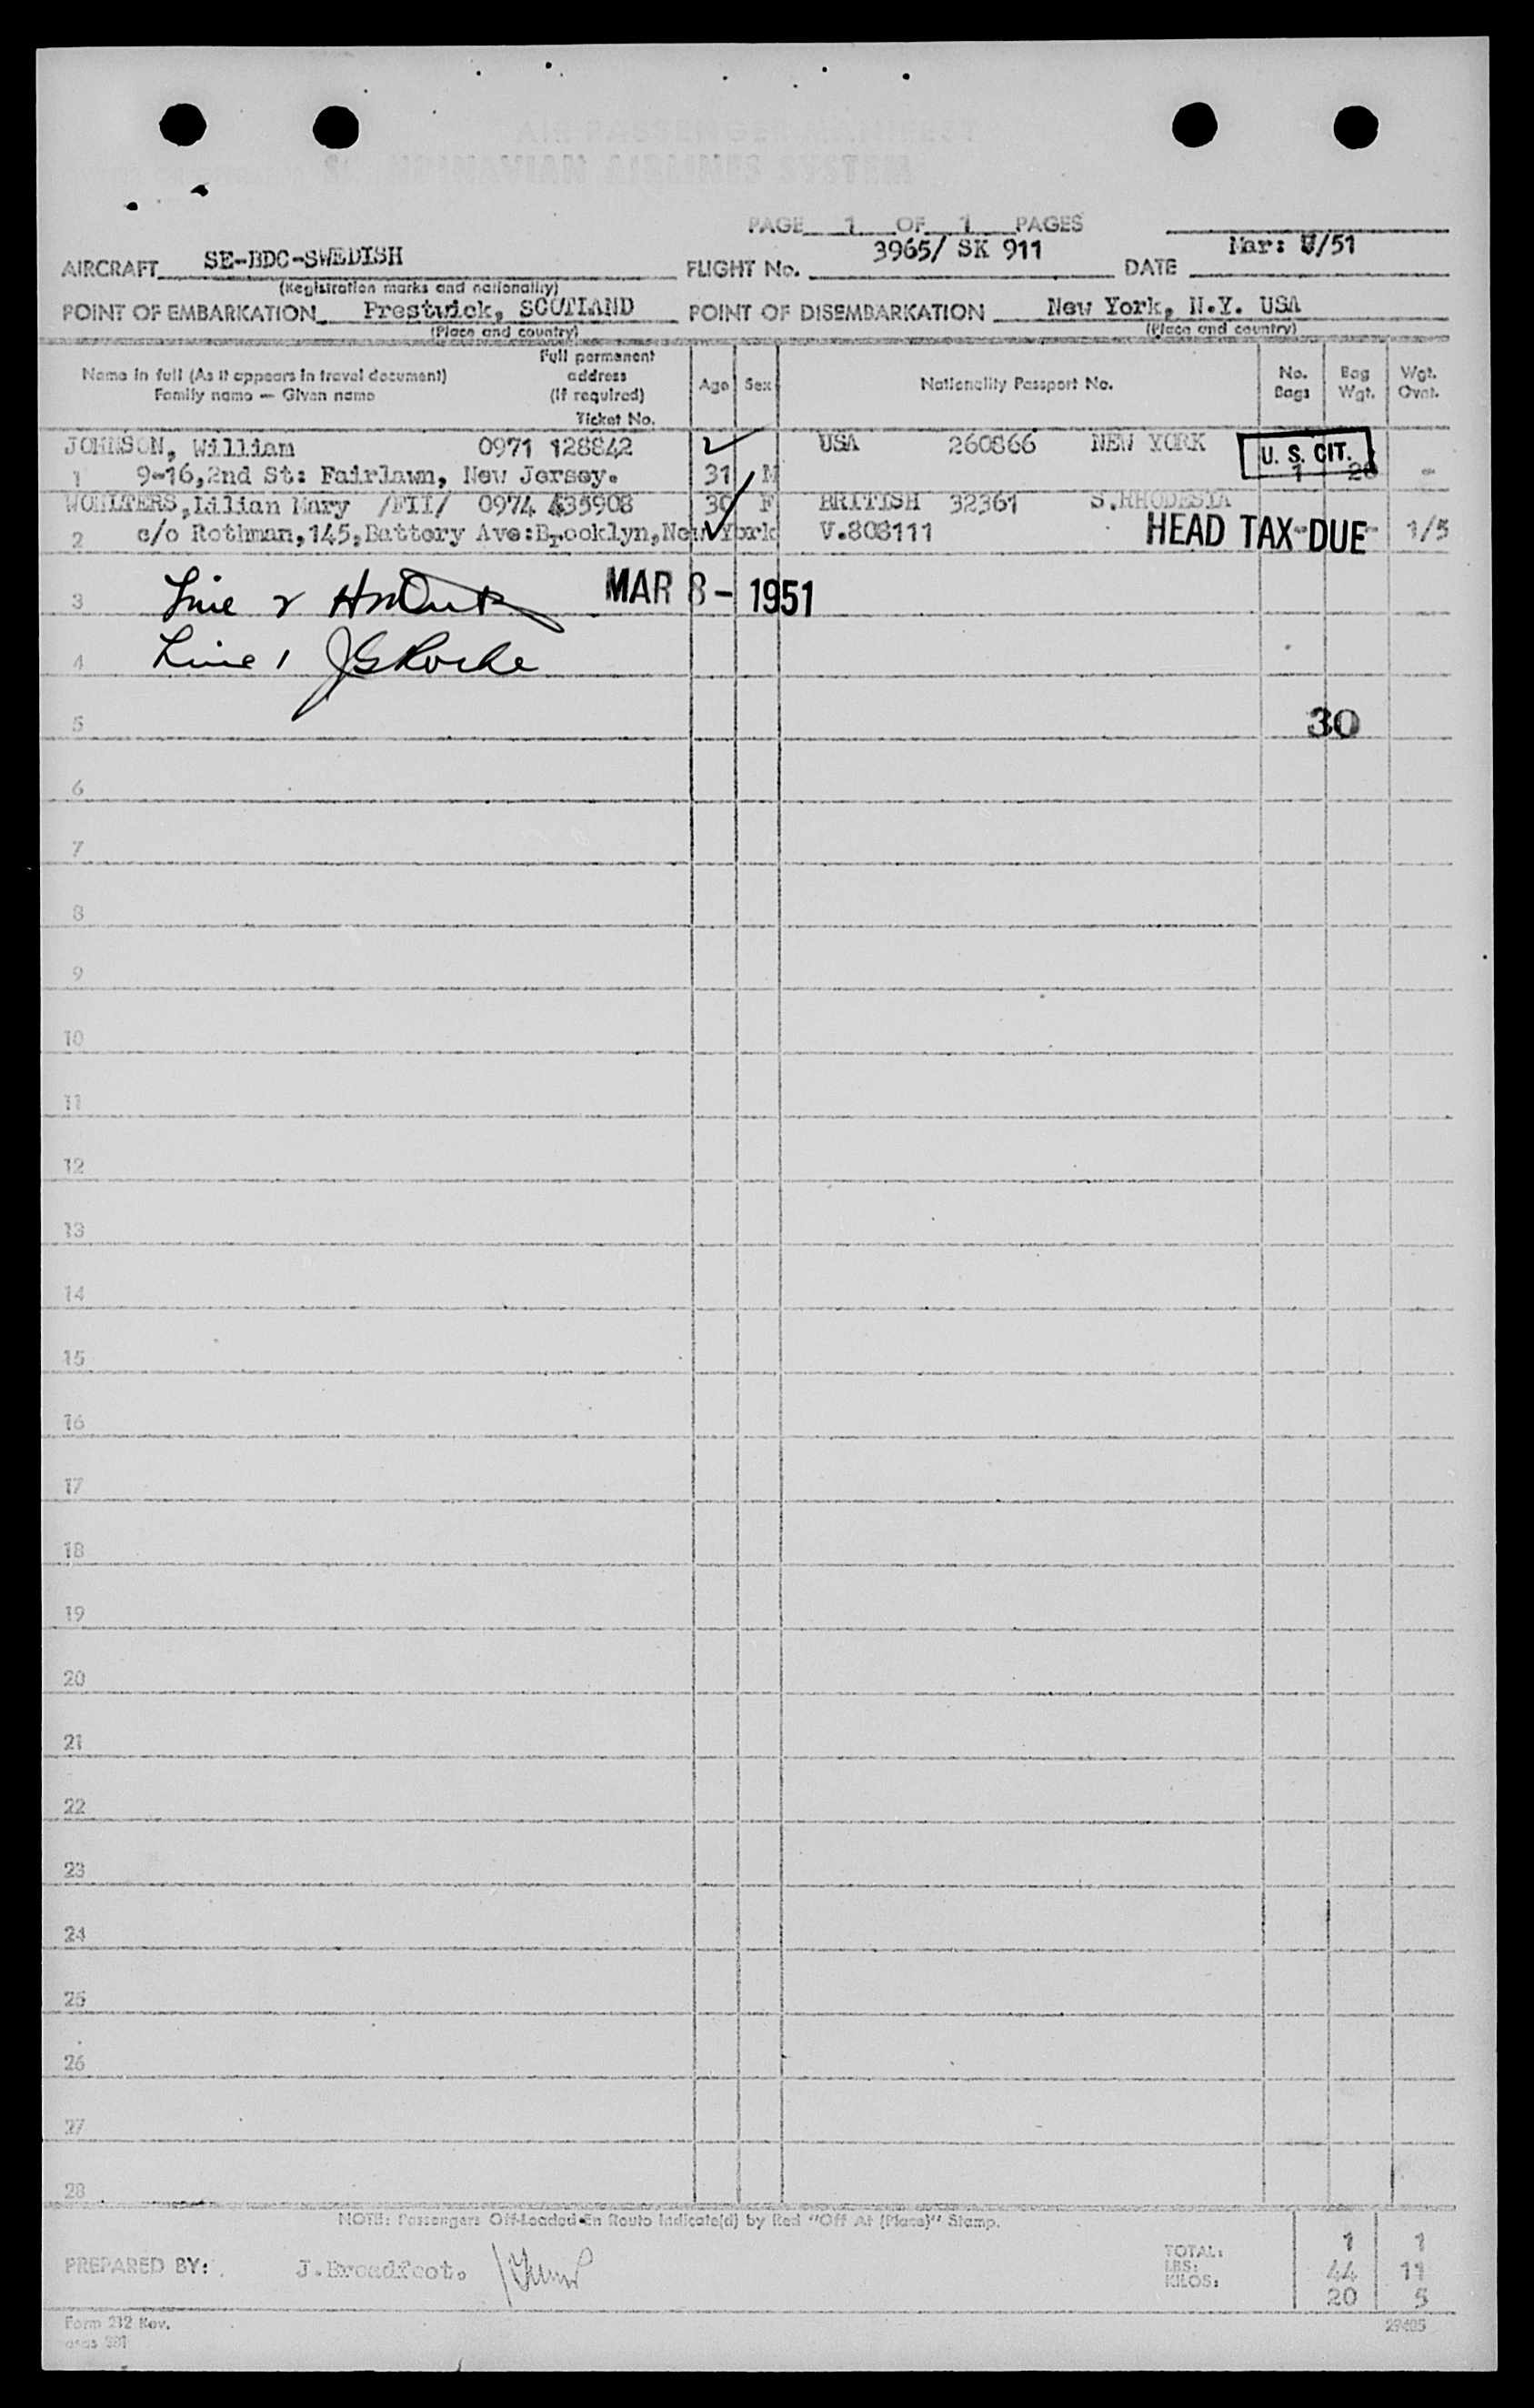 AIR PASSENGER MANIFEST
SCANDINAVIAN AIRLINES SYSTEM
PAGE 1 OF 1 PAGES
AIRCRAFT SE-BDC-SWEDISH FLIGHT No. 3965/ SK 911 DATE Mar: /51
(Registration marks and nationality)
POINT OF EMBARKATION Prestwick, SCOTLAND POINT OF DISEMBARKATION New York, N.Y. USA
(Place and country) (Place and country)
Name in full (As it appears in travel document) Family name — Given name Full permanent address (If required) Ticket No. Age Sex Nationality Passport No. No. Bags Bag Wgt. Wgt. Ovnt.
JOHNSON, William 0971 128842 USA 260866 NEW YORK U. S. CIT.
1 9-16,2nd St: Fairlawn, New Jersey. 31 M 1 20 -
WOHLTERS,Lilian Mary /FII/ 0974 435908 30 F BRITISH 32361 S.RHODESIA
2 c/o Rothman,145,Battery Ave:Brooklyn,New York V.808111 HEAD TAX DUE 1/5
3 Line 2 MAR 8 - 1951
4 Line 1 JG Roche
5 30
6
7
8
9
10
11
12
13
14
15
16
17
18
19
20
21
22
23
24
25
26
27
28
NOTE: Passengers Off-Loaded En Route Indicate(d) by Red "Off At (Place)" Stamp.
TOTAL: 1 1
PREPARED BY: J.Broadfoot. LBS: 44 11
KILOS: 20 5
Form 212 Rev.
29405